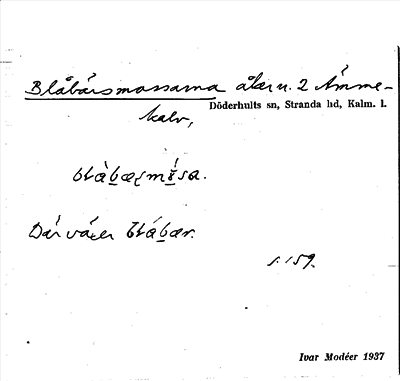 Blåbärsmossarna åker u. 2 Ämme-
Döderhults sn, Stranda hd, Kalm. l.
kalv,
Där växer blåbär.
s. 159.
Ivar Modéer 1937